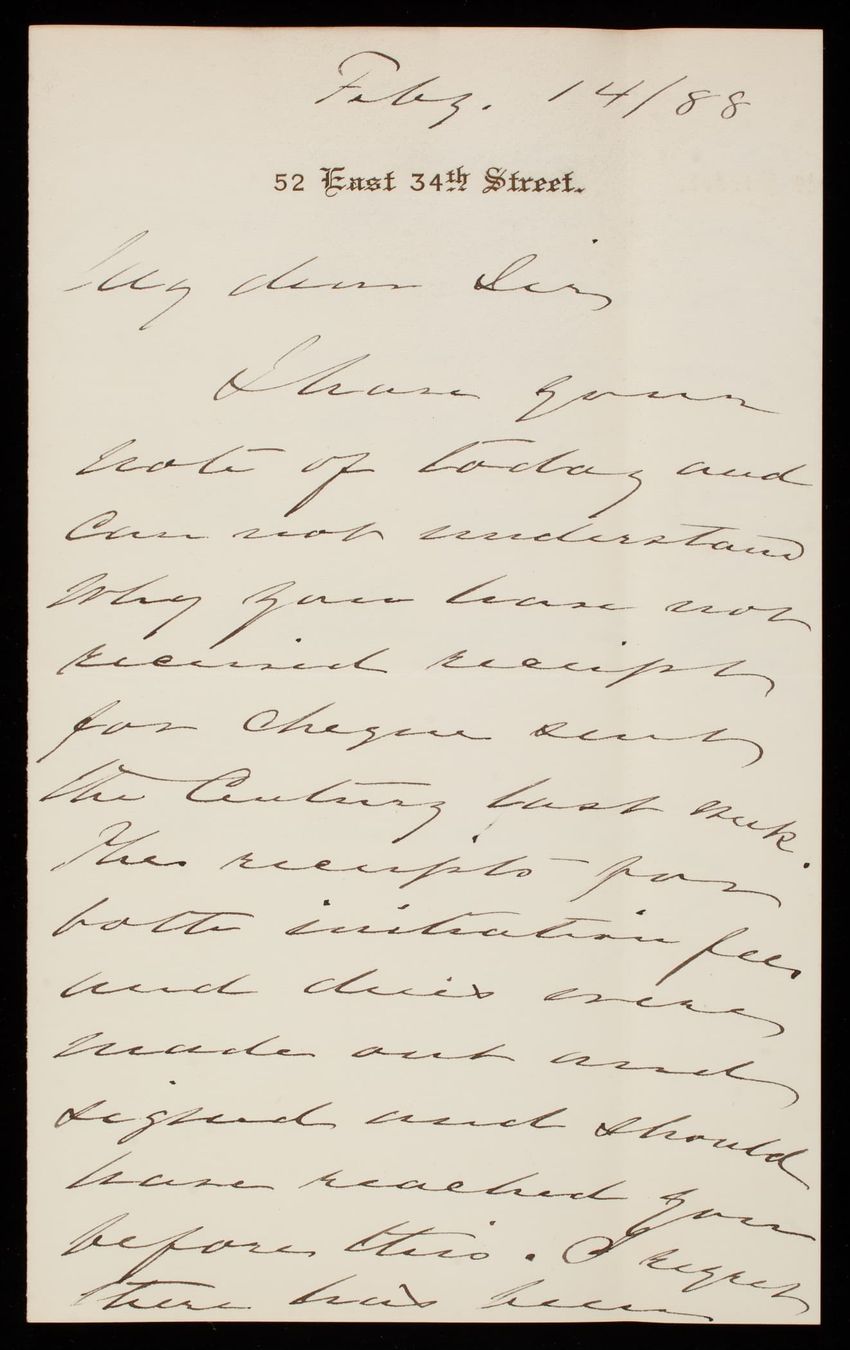 Feby. 14/88
52 East 34th Street.
My dear Sir,
I have your
note of today and
can not understand
why you have not
received receipt
for cheque sent
the Century last week.
The receipts for
both initiation fees
and dues were
made out and
signed and should
have reached you
before this. I regret
there has been